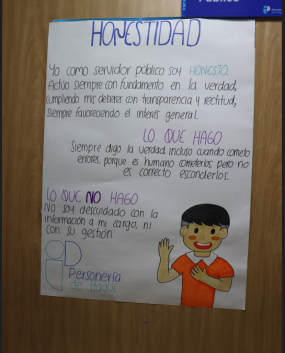 HONESTIDAD
Yo como servidor público soy HONESTO.
Actúo siempre con fundamento en la verdad
cumpliendo mis deberes con transparencia y rectitud,
siempre favoreciendo el interés general.
LO QUE HAGO
Siempre digo la verdad, incluso cuando cometo
errores, porque es humano cometerlos, pero no
es correcto esconderlos.
LO QUE NO HAGO
NO soy descuidado con la
información a mi cargo, ni
con su gestión.
Personería
de Itagüí